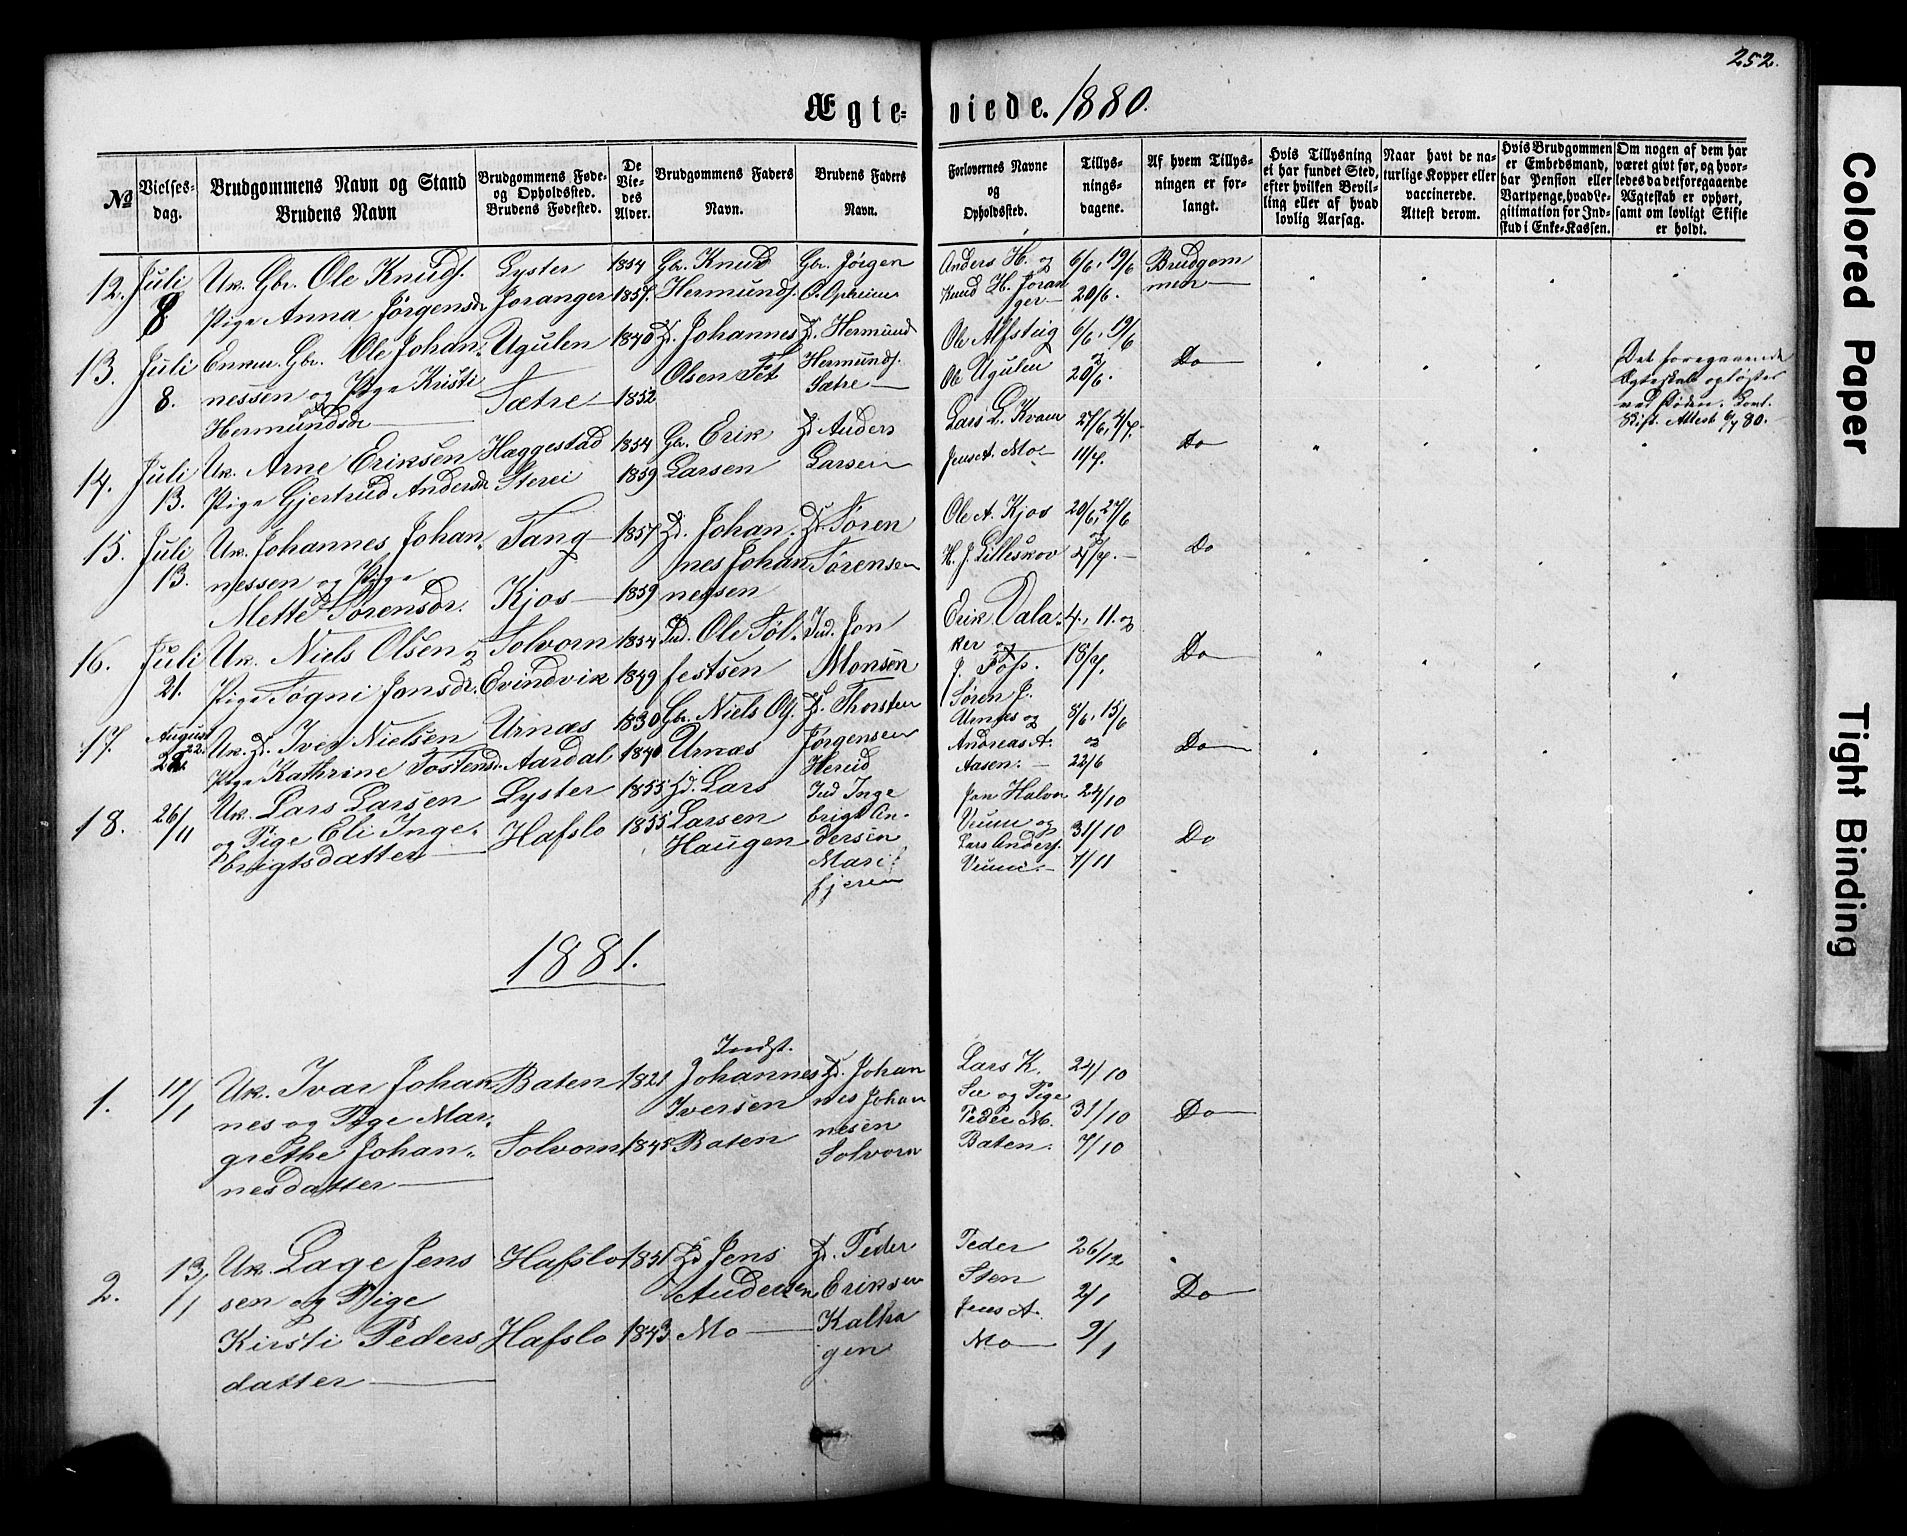 252.
Ægteviede. 1880.
№
Vielsesdag.
Brudgommens Navn og Stand
Brudens Navn
Brudgommens Føde-
og Opholdssted.
Brudens Fødested.
De
Vie-
des
Alder.
Brudgommens Faders
Navn.
Brudens Faders
Navn.
Forlovernes Navne
og
Opholdssted.
Tillys-
nings-
dagene.
Af hvem Tillys-
ningen er for-
langt.
Hvis Tillysning
ei har fundet Sted,
efter hvilken Bevil-
ling eller af hvad
lovlig Aarsag.
Naar havt de na-
turlige Kopper eller
vaccinerede.
Attest derom.
Hvis Brudgommen
er Embedsmand,
har Pension eller
Vartpenge, hvad Le-
gitimation for Ind-
skud i Enke-Kassen.
Om nogen af dem har
været givt før, og hvor-
ledes da det foregaaende
Ægteskab er ophørt,
samt om lovligt Skifte
er holdt.
12. Juli 8
Uk. Gbr. Ole Knuds.
Pige Anna Jørgensdr
Lyster
Joranger
1854
1857.
Gbr. Knud
Hermunds.
Gbr. Jørgen
O. Opheim
Anders H. og
Knud H. Joran
ger
6/6, 19/6
20/6.
Brudgom
men
13. Juli 8.
Enkem. Gbr. Ole Johan
nessen og Pige Kristi
Hermundsdr
Ugulen
Sætre
1840
1852
Pd. Johannes
Olsen Fet
Pd. Hermund
Hermunds.
Sætre
Ole Alfsteig
Ole Ugulen
6/6, 19/6
og
20/6.
Do
Det foregaaende
Ægteskab opløstes
ved Døden.
Skift. Attest 6/7 80.
14. Juli 13.
Uk. Arne Eriksen
Pige Gjertrud Andersdr
Haggestad
Sterei
1854
1859
Gbr. Erik
Larsen
Pd Anders
Larsen
Lars L. Kvam
Jens A. Mo
27/6, 4/7.
11/7.
Do
15. Juli 13.
Uk. Johannes Johan
nessen og Pige
Mette Sørensdr.
Tang
Kjos
1857
1859
Pd. Johan
nes Johan
nessen
Pd. Søren
Sørensen
Ole A. Kjos
H. J. Lilleskov
20/6, 27/6
4/7.
Do
16. Juli 21.
Uk. Niels Olsen og
Pige Sogni Jonsdr.
Solvorn
Evindvik
1854
1849
Ind. Ole Søl
festsen
Ind. Jon
Monsen
Erik Vala
ker og
J. Foss.
4., 11. og
18/7.
Do
17. August 22.
Uk. Pd. Iver Nielsen
Pige Kathrine Tostensd.
Urnæs
Aardal
1830
1840
Gbr. Niels Ols.
Urnæs
Pd. Thorsten
Jørgensen
Herud
Søren J.
Urnes og
Andreas A.
Aasen.
8/6, 15/6
og
22/6
Do
18. 26/11
Uk. Lars Larsen
og Pige Eli Inge
brigtsdatter
Lyster
Hafslo
1855
1855
Pd. Lars
Larsen
Haugen
Ind Inge
brigt An-
dersen
Mari
fjeren
Jon Halvo
Veum og
Lars Anders.
Veum.
24/10
31/10
7/11
Do
1881.
1. 11/1
Uk. Ivar Johan
nes og Pige Mar
grethe Johan
nesdatter
Baten
Solvorn
1821
1845
Indst.
Johannes
Iversen
Baten
Pd. Johan
nes Johan
nesen
Solvorn
Lars K.
See og Pige
Peder M.
Baten.
24/10
31/10
7/10
Do
2. 13/1
Uk. Lage Jens
sen og Pige
Kirsti Peders
datter
Hafslo
Hafslo
1851
1843
Pd Jens
Andersen
Mo
Pd. Peder
Eriksen
Kalha
gen
Peder
Sten
Jens A.
Mo
26/12
2/1
9/1
Do
Colored Paper
Tight Binding